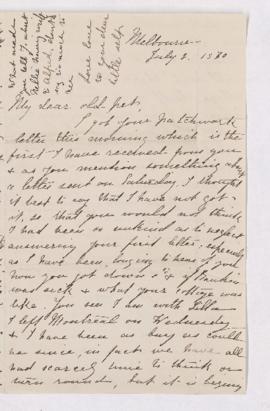 Melbourne
July 2. 1880
My dear old Pet,
I got your patchwork
letter this morning which is the
first I have received from you
& as you mention something about
a letter sent on Saturday, I thought
it best to say that I have not got
it, so that you would not think
I had been so unkind as to neglect
answering your first letter, especially
as I have been longing to hear of you
how you got down & if
was sick & what your cottage was
like. You see I am with
I left Montreal on Wednesday
& I have been as busy as could
be since, in fact we have all
had scarcely time to think or
turn round, but it is
What made
you tell
Nellie
& Alfred
so much to
love love
to your dear
little self